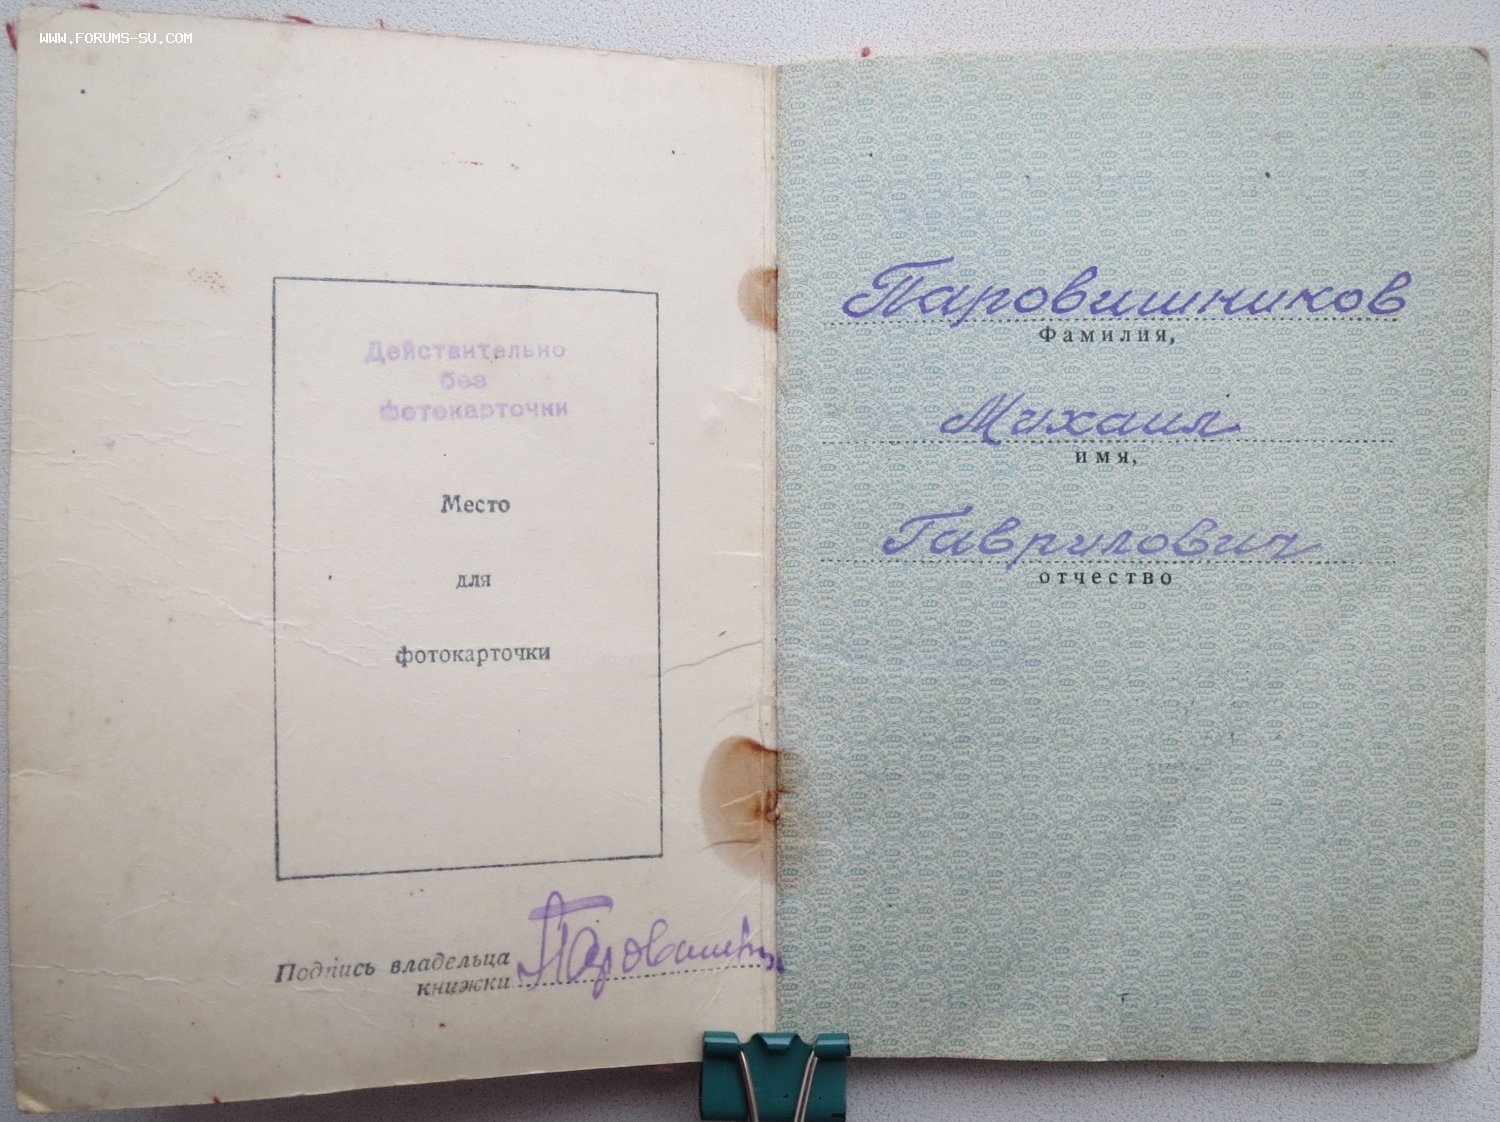 WWW.FORUMS-SU.COM
Действительно
без
фотокарточки
Место
для
фотокарточки
Подпись владельца
книжки
Паровишников
Фамилия,
Михаил
имя,
Гаврилович
отчество